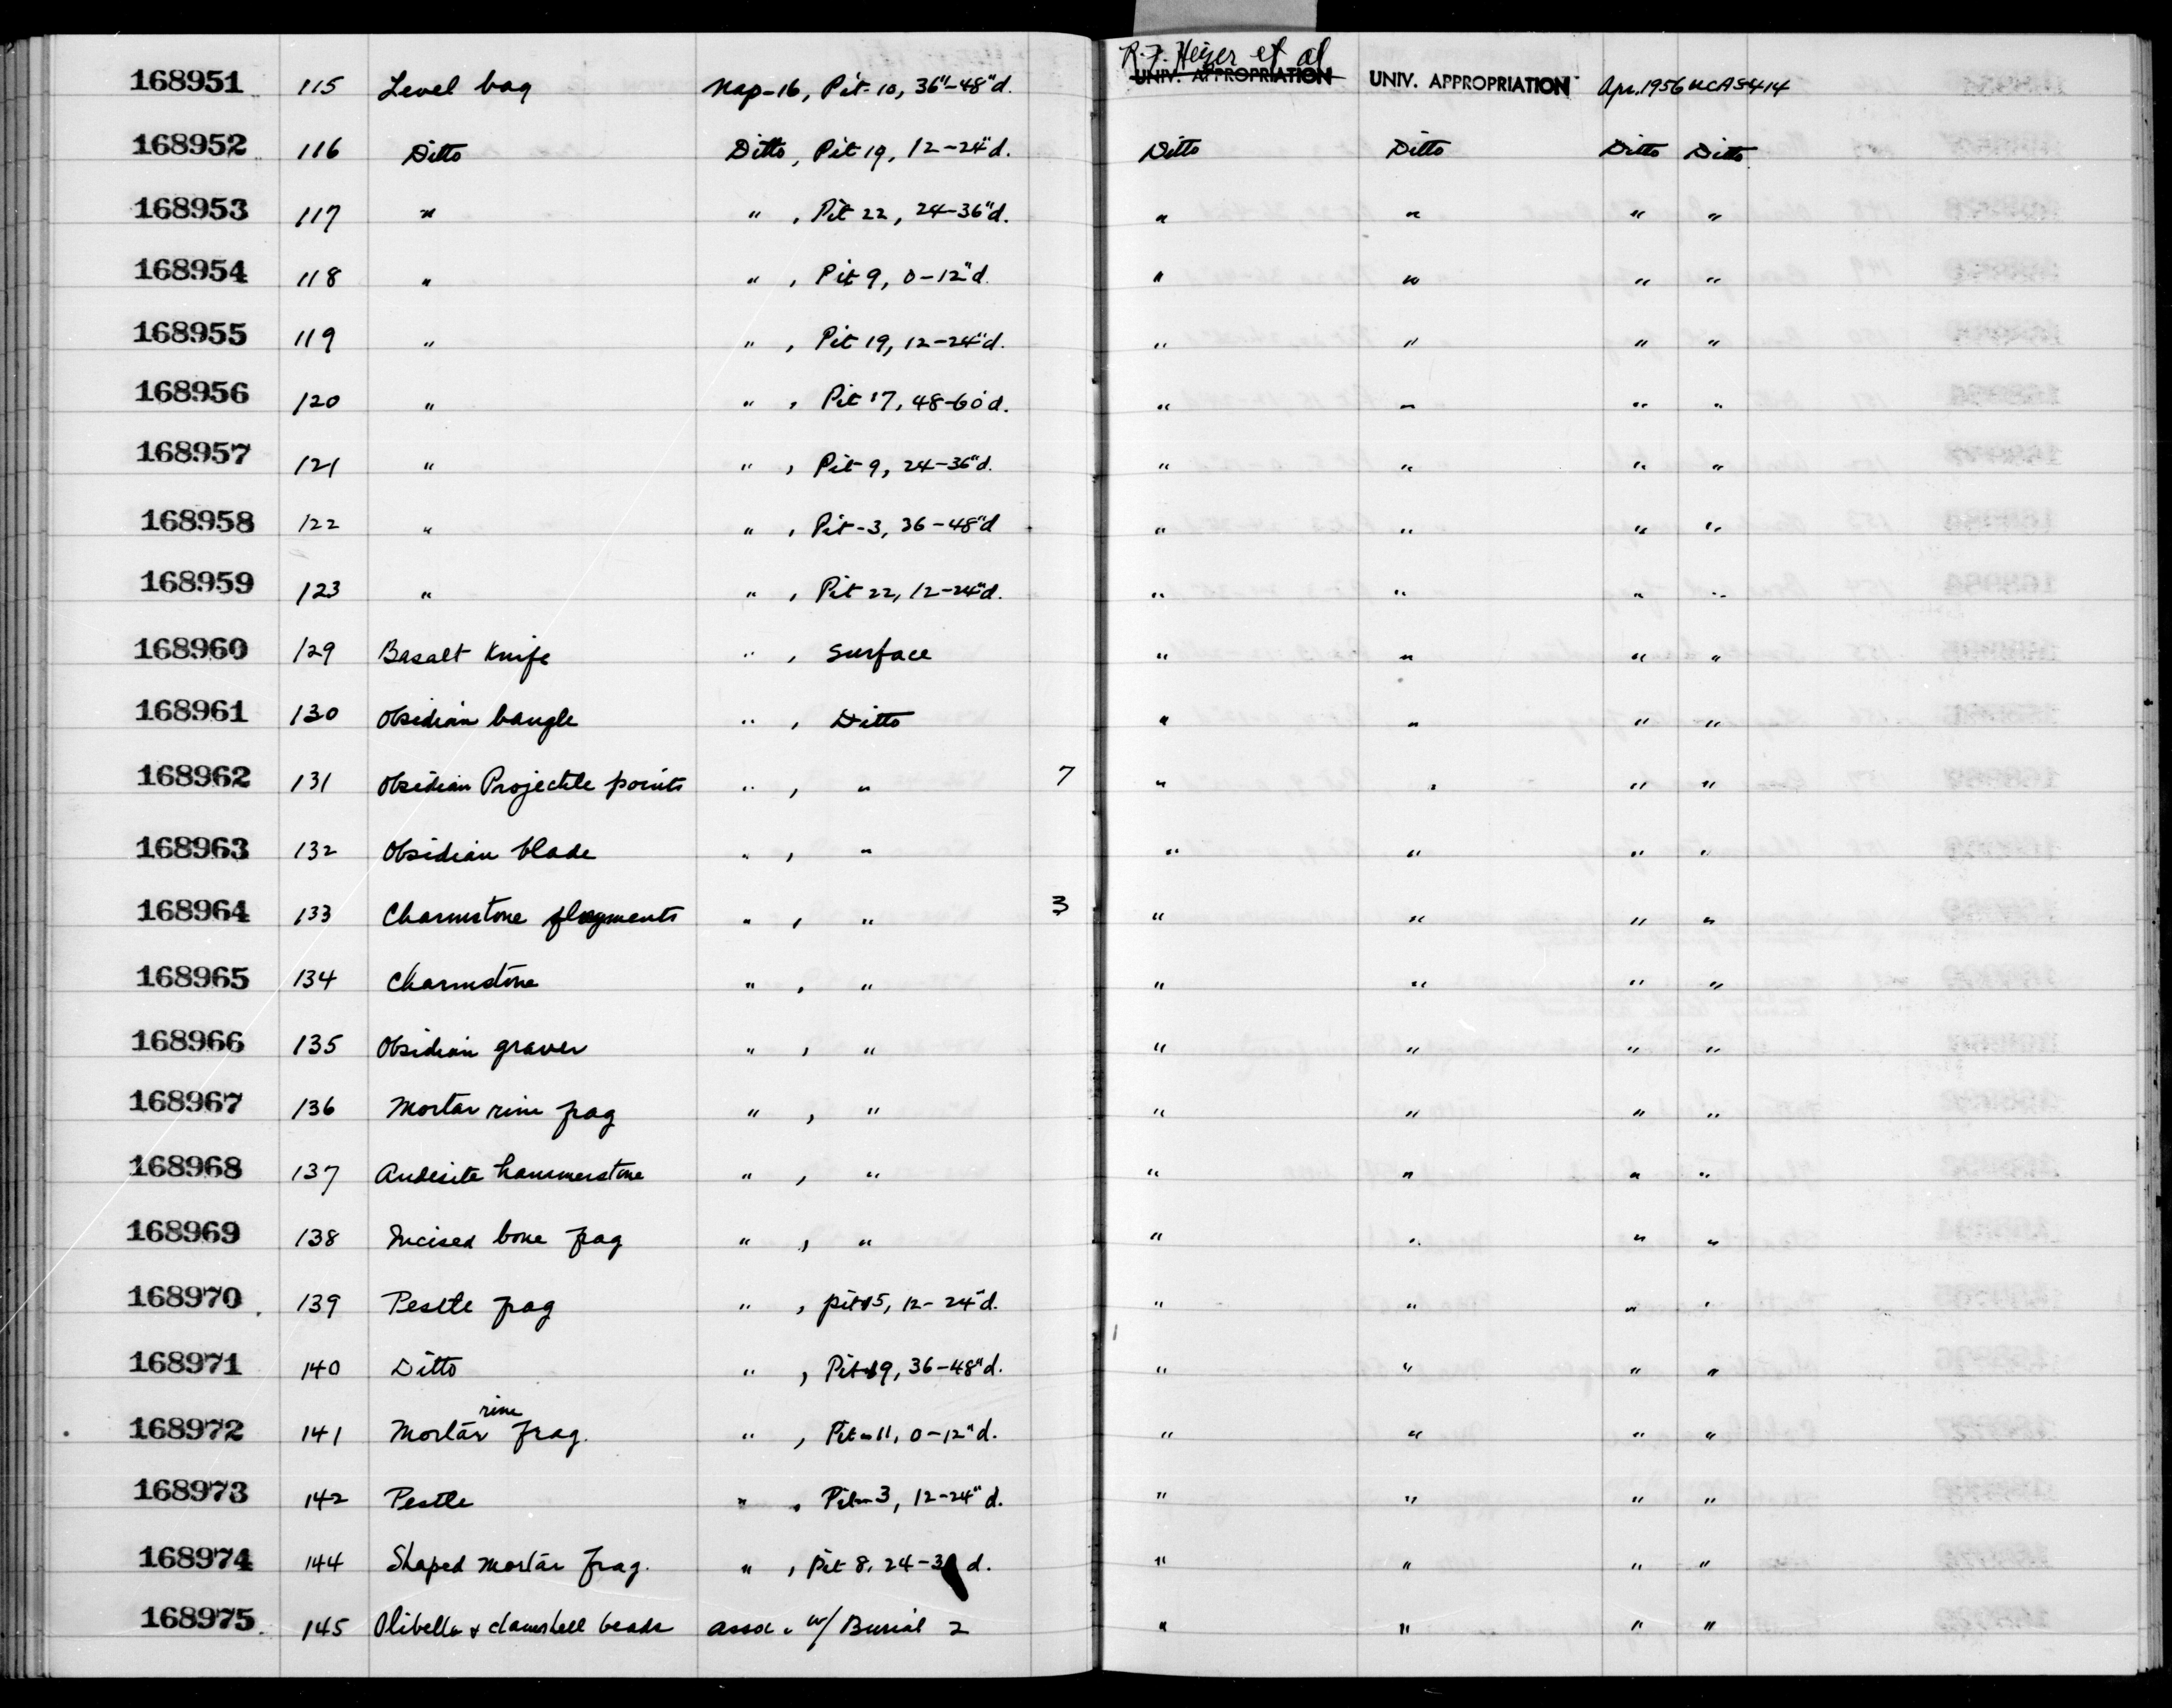 R.F. Heizer et al
168951 115 Level bag Nap-16, Pit-10, 36"-48"d. UNIV. APPROPRIATION UNIV. APPROPRIATION Apr. 1956 UCAS414
168952 116 Ditto Ditto, Pit 19, 12-24"d. Ditto Ditto Ditto Ditto
168953 117 " " , Pit 22, 24-36"d. " " " "
168954 118 " " , Pit 9, 0-12"d. " " " "
168955 119 " " , Pit 19, 12-24"d. " " " "
168956 120 " " , Pit 17, 48-60"d. " " " "
168957 121 " " , Pit 9, 24-36"d. " " " "
168958 122 " " , Pit-3, 36-48"d " " " "
168959 123 " " , Pit 22, 12-24"d. " " " "
168960 129 Basalt Knife " , Surface " " " "
168961 130 Obsidian bangle " , Ditto " " " "
168962 131 Obsidian Projectile points " , " 7 " " " "
168963 132 Obsidian blade " , " " " " "
168964 133 Charmstone fragments " , " 3 " " " "
168965 134 Charmstone " , " " " " "
168966 135 Obsidian graver " , " " " " "
168967 136 Mortar rim frag " , " " " " "
168968 137 Andesite hammerstone " , " " " " "
168969 138 Incised bone frag " , " " " " "
168970 139 Pestle frag " , pit 15, 12-24"d. " " " "
168971 140 Ditto " , Pit 19, 36-48"d. " " " "
rim
168972 141 Mortar frag. " , Pit-11, 0-12"d. " " " "
168973 142 Pestle " , Pit-3, 12-24"d. " " " "
168974 144 Shaped mortar frag. " , Pit 8, 24- d. " " " "
168975 145 Olibella & clamshell beads assoc. w/ Burial 2 " " " "